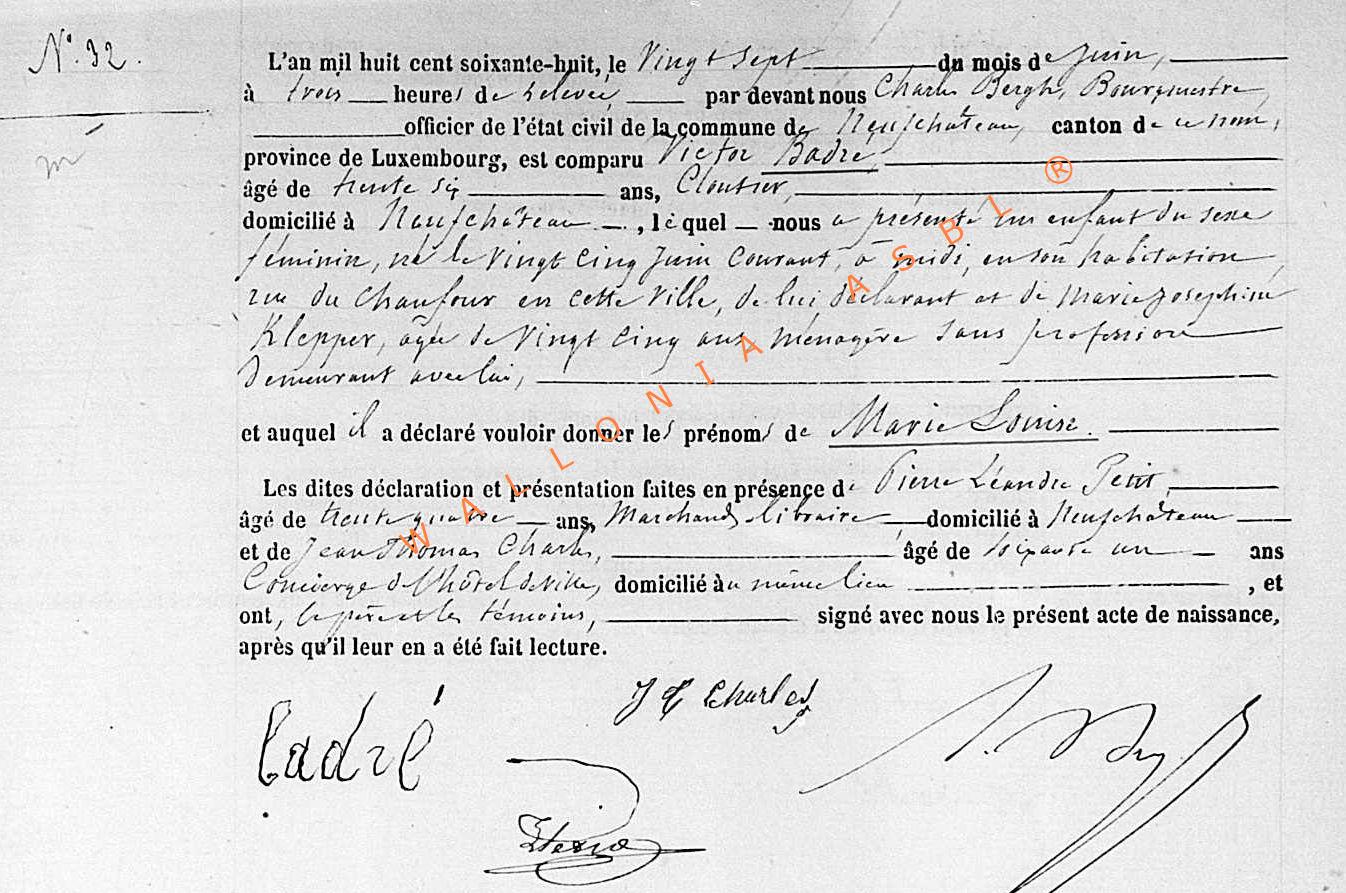 N° 32.
L'an mil huit cent soixante-huit, le Vingt Sept du mois de Juin,
à trois heures de relevée, par devant nous Charles Bergh, Bourgmestre,
officier de l'état civil de la commune de Neufchâteau, canton de ce nom,
province de Luxembourg, est comparu Victor Badré,
âgé de trente six ans, Cloutier,
domicilié à Neufchâteau, lequel nous a présenté un enfant du sexe
féminin, né le Vingt Cinq Juin Courant, à midi, en son habitation,
rue du Chaufour en cette Ville, de lui déclarant et de Marie Josephine
Klepper, agée de Vingt Cinq ans ménagère sans profession
demeurant avec lui,
et auquel il a déclaré vouloir donner les prénoms de Marie Louise.
Les dites déclaration et présentation faites en présence de Pierre Léandre Petit,
âgé de trente quatre ans, Marchand libraire domicilié à Neufchâteau
et de Jean Thomas Charles, âgé de soixante un ans
Concierge de l'hôtel de Ville, domicilié au même lieu, et
ont, le père et les témoins, signé avec nous le présent acte de naissance,
après qu'il leur en a été fait lecture.
J T Charles
badré
WALLONIA ASBL ®